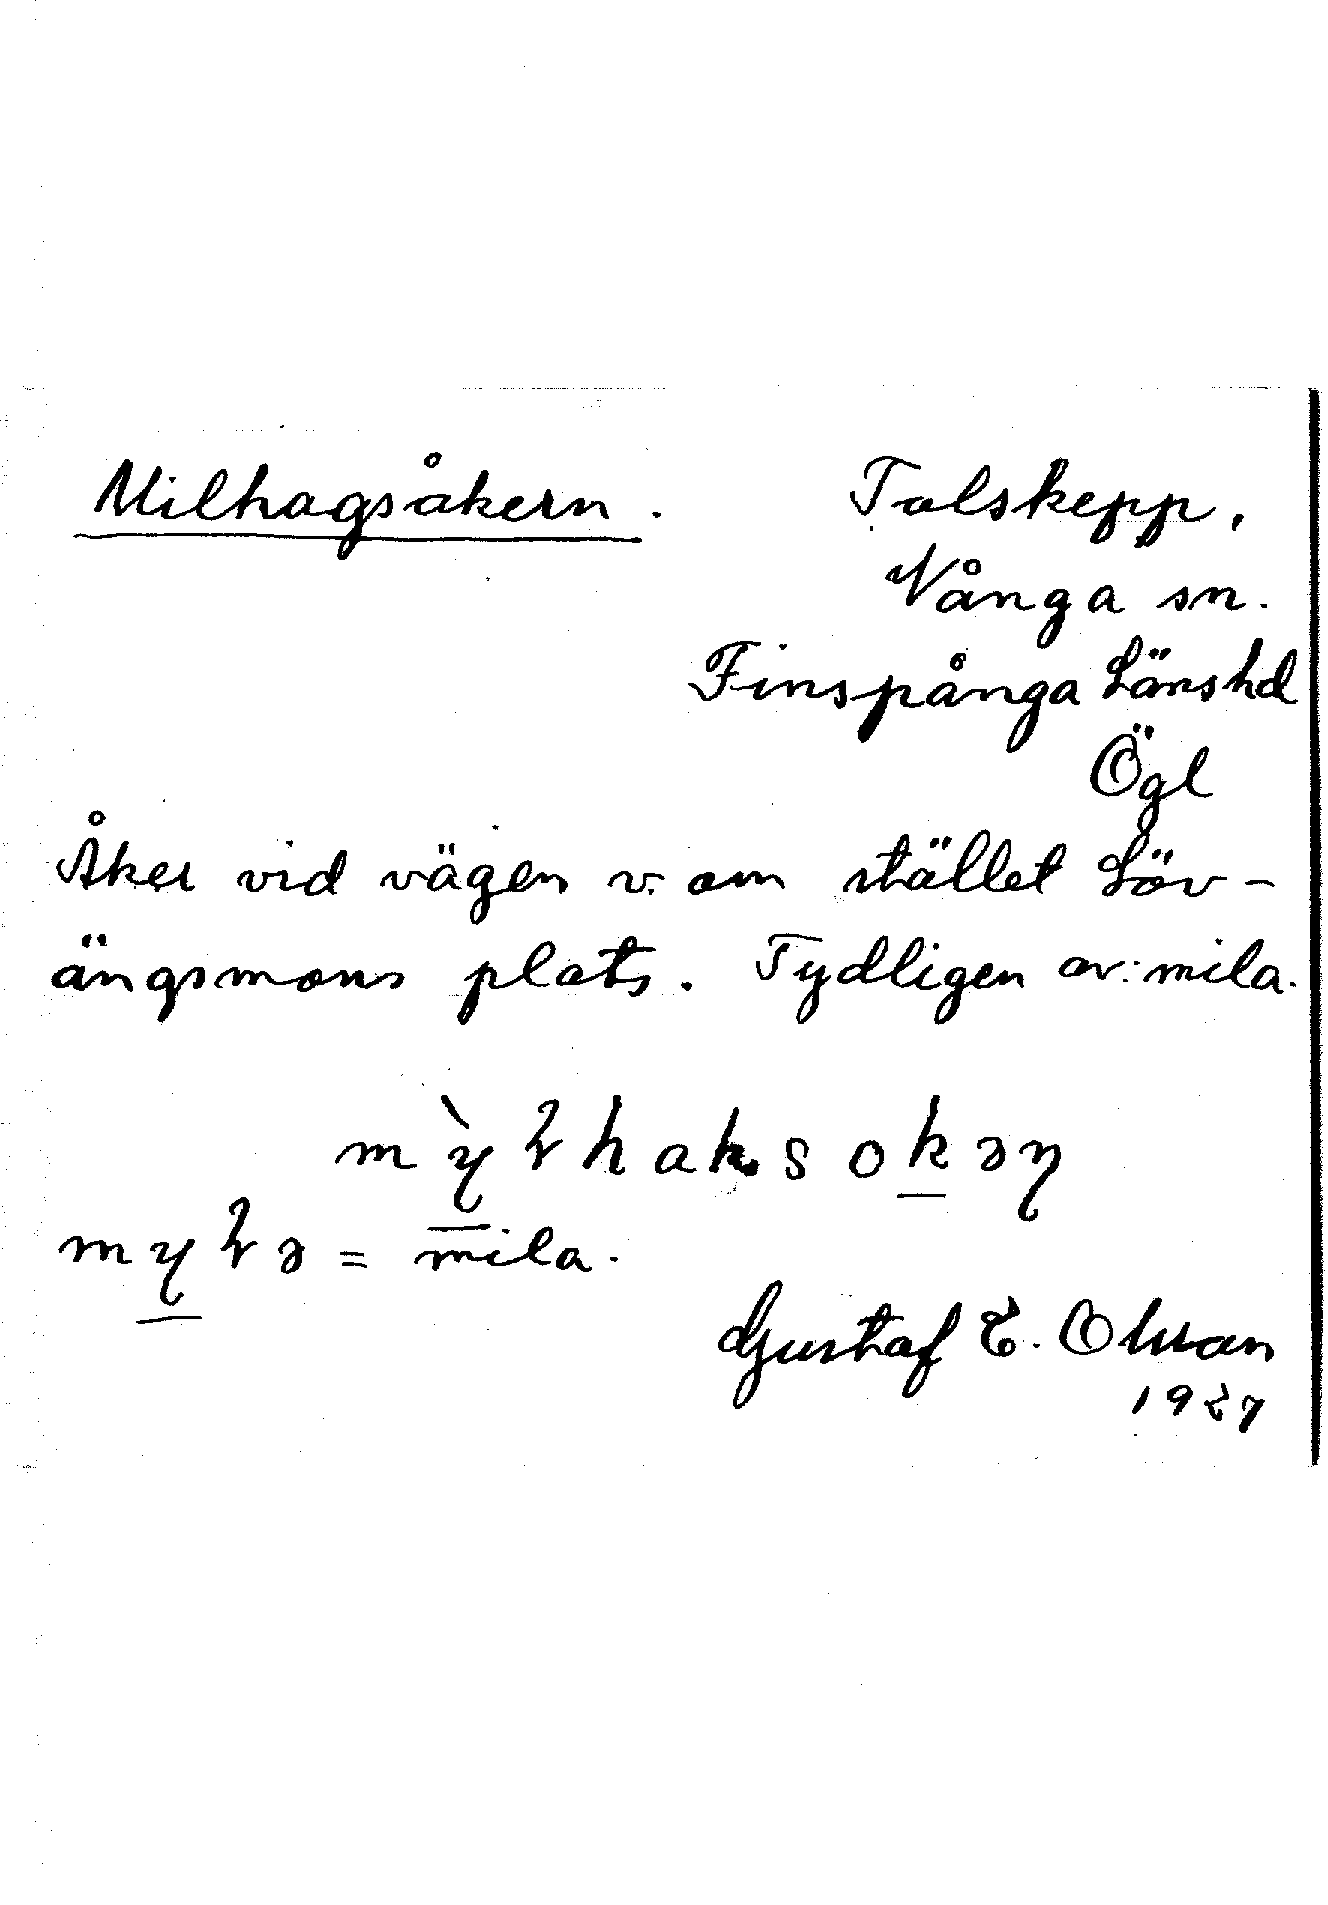 Milhagsåkern. Tolskepp,
Vånga sn.
Finspånga Länshd
Ögl
Åker vid vägen v. om stället Löv-
ängsmons plats. Tydligen av: mila.
= mila.
Gustaf E. Olsson
1927